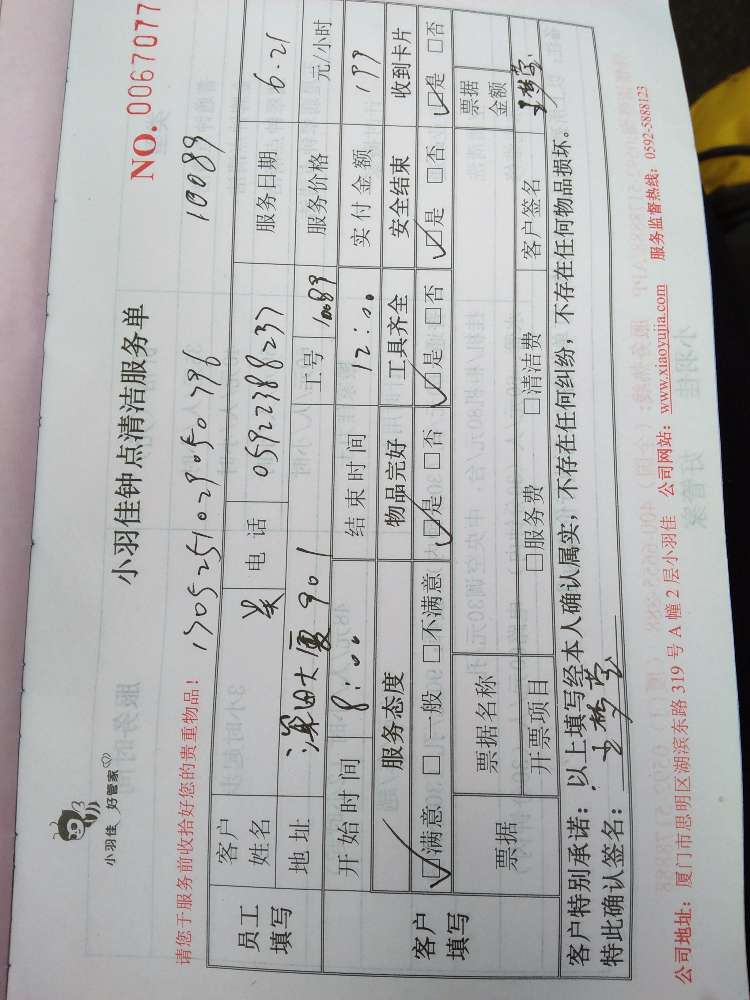 小羽佳 好管家
小羽佳钟点清洁服务单
NO. 0067077
请您于服务前收拾好您的贵重物品!
1705251029050796 10089
员工填写 客户姓名 吴 电话 05922388237 服务日期 6.21
地址 大厦901 工号 10089 服务价格 元/小时
客户填写 开始时间 8:00 结束时间 12:00 实付金额 199
服务态度 物品完好 工具齐全 安全结束 收到卡片
☑满意 □一般 □不满意 ☑是 □否 ☑是 □否 ☑是 □否 ☑是 □否
票据 票据名称 票据金额
开票项目 □服务费 □清洁费 客户签名
客户特别承诺:以上填写经本人确认属实,不存在任何纠纷,不存在任何物品损坏。
特此确认签名:
公司地址:厦门市思明区湖滨东路 319 号 A 幢 2 层小羽佳 公司网站:www.xiaoyujia.com 服务监督热线:0592-5888123